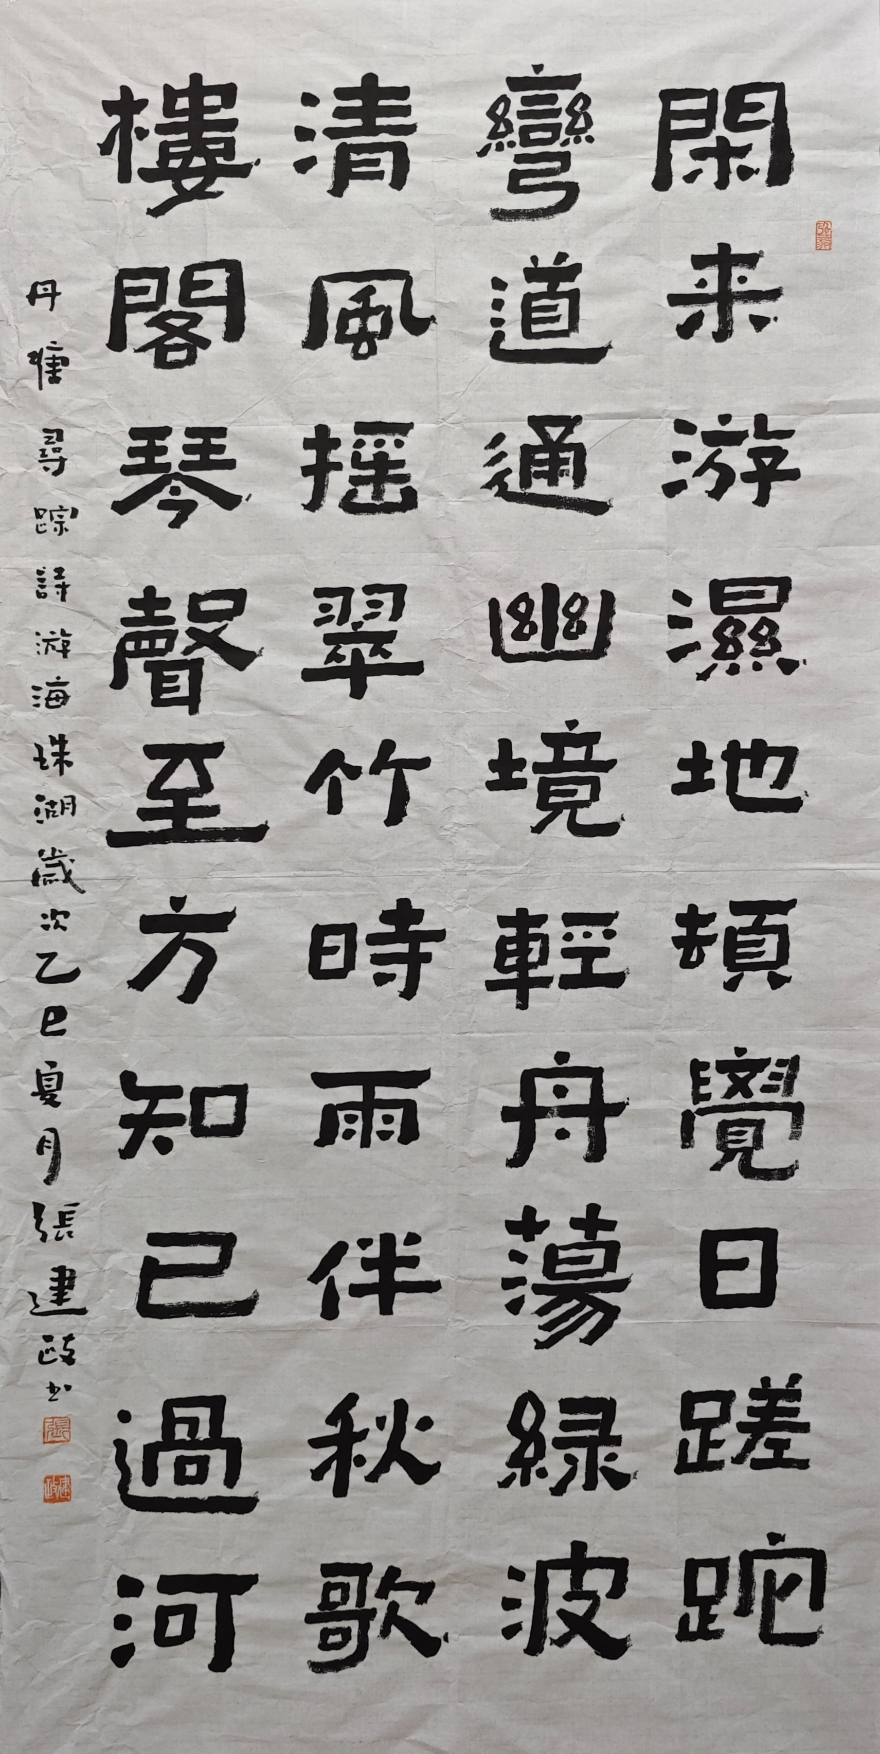 閑来游濕地頓覺日蹉跎
彎道通幽境輕舟蕩緑波
清風摇翠竹時雨伴秋歌
樓閣琴聲至方知已過河
丹塘尋踪詩游海珠湖歲次乙巳夏月張建政书